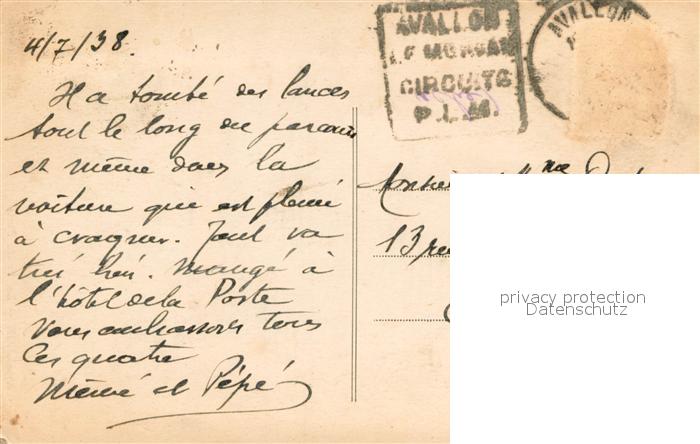 4/7/38.
Il a tombé des lances
tout le long du parcours
et même dans la
voiture qui est
à craquer. Tout va
très bien. Mangé à
l'hôtel de la Poste
Vous embrassons tous
Les quatre
Mémé et Pépé
AVALLON
LE MORVAN
CIRCUITS
P.L.M.
AVALLON
13
privacy protection
Datenschutz